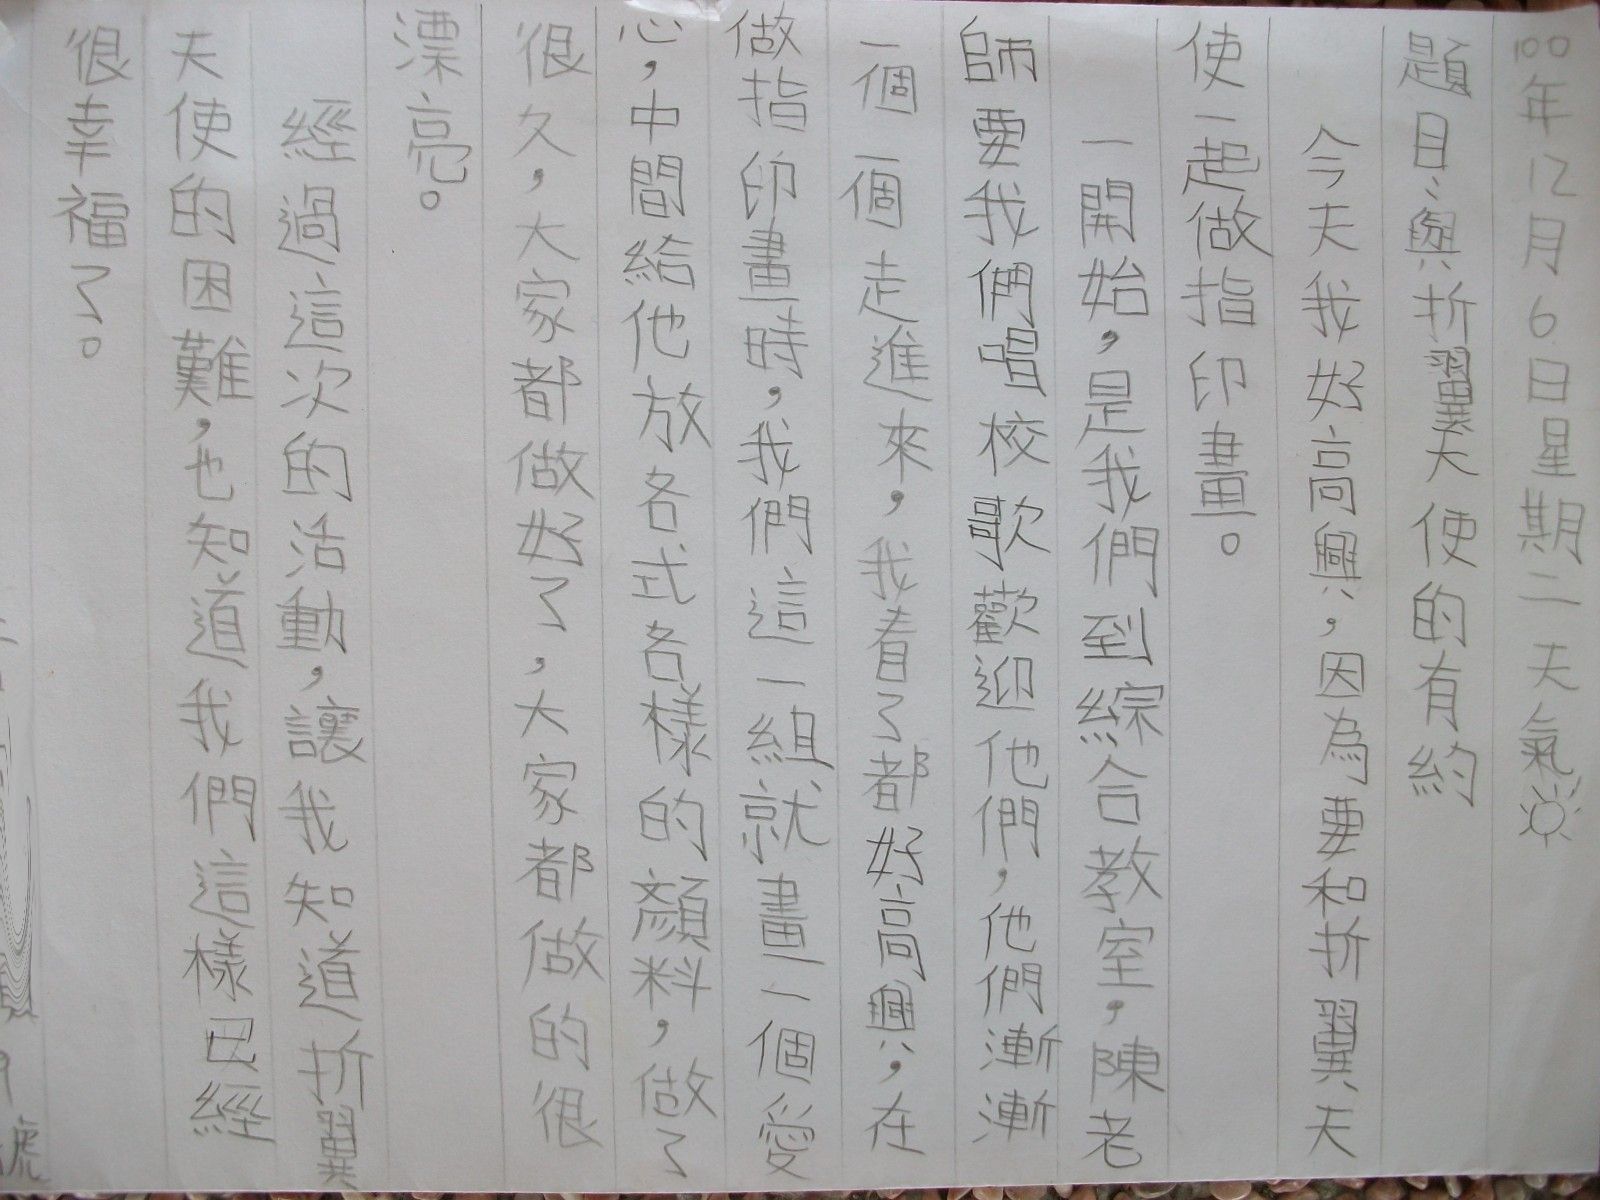 100年12月6日星期二天氣
題目:與折翼天使的有約
今天我好高興，因為要和折翼天
使一起做指印畫。
一開始，是我們到綜合教室，陳老
師要我們唱校歌歡迎他們，他們漸漸
一個一個走進來，我看了都好高興，在
做指印畫時，我們這一組就畫一個愛
心，中間給他放各式各樣的顏料，做了
很久，大家都做好了，大家都做的很
漂亮。
經過這次的活動，讓我知道折翼
天使的困難，也知道我們這樣已經
很幸福了。